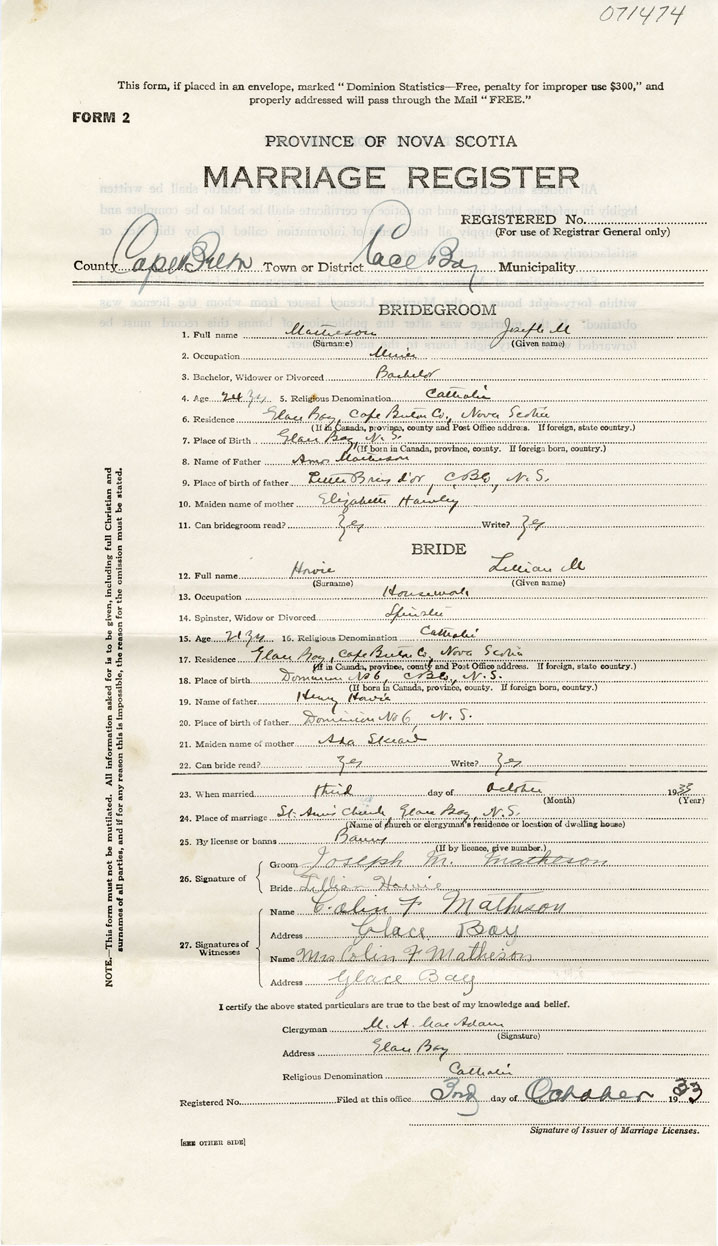 071474
This form, if placed in an envelope, marked "Dominion Statistics—Free, penalty for improper use $300," and
properly addressed will pass through the Mail "FREE."
FORM 2
PROVINCE OF NOVA SCOTIA
MARRIAGE REGISTER
REGISTERED No.
(For use of Registrar General only)
County Cape Breton Town or District Glace Bay Municipality
BRIDEGROOM
1. Full name Matheson Joseph M
(Surname) (Given name)
2. Occupation Miner
3. Bachelor, Widower or Divorced Bachelor
4. Age 24 5. Religious Denomination Catholic
6. Residence Glace Bay, Cape Breton Co, Nova Scotia
(If in Canada, province, county and Post Office address. If foreign, state country.)
7. Place of Birth Glace Bay, N.S.
(If born in Canada, province, county. If foreign born, country.)
8. Name of Father Amos Matheson
9. Place of birth of father Little Bras d'or, C B Co, N.S.
10. Maiden name of mother Elizabeth Hawley
11. Can bridegroom read? Yes Write? Yes
BRIDE
12. Full name Howie Lillian M
(Surname) (Given name)
13. Occupation Housework
14. Spinster, Widow or Divorced Spinster
15. Age 21 16. Religious Denomination Catholic
17. Residence Glace Bay, Cape Breton Co, Nova Scotia
(If in Canada, province, county and Post Office address. If foreign, state country.)
18. Place of birth Dominion No 6, C B Co, N.S.
(If born in Canada, province, county. If foreign born, country.)
19. Name of father Henry Howie
20. Place of birth of father Dominion No 6, N.S.
21. Maiden name of mother Ada
22. Can bride read? Yes Write? Yes
23. When married third day of October 1933
(Month) (Year)
24. Place of marriage St. Ann's Church, Glace Bay, N.S.
(Name of church or clergyman's residence or location of dwelling house)
25. By license or banns Banns
(If by licence, give number.)
26. Signature of
Groom Joseph M. Matheson
Bride Lillian Howie
27. Signatures of Witnesses
Name Colin F Matheson
Address Glace Bay
Name Mrs Colin F Matheson
Address Glace Bay
I certify the above stated particulars are true to the best of my knowledge and belief.
Clergyman M. A. MacAdam
(Signature)
Address Glace Bay
Religious Denomination Catholic
Registered No. Filed at this office 3rd day of October 1933
Signature of Issuer of Marriage Licenses.
[SEE OTHER SIDE]
NOTE.—This form must not be mutilated. All information asked for is to be given, including full Christian and
surnames of all parties, and if for any reason this is impossible, the reason for the omission must be stated.